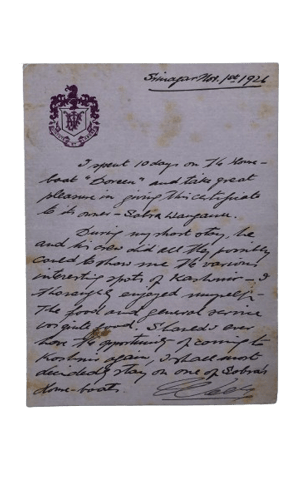 Srinagar Nov. 1st 1926
I spent 10 days on the Home-
boat "Doreen" and take great
pleasure in giving this certificate
to its owner - Sobra Wangnoo.
During my short stay, he
and his crew did all they possibly
could to show me the various
interesting spots of Kashmir - I
thoroughly enjoyed myself -
The food and general service
was quite good. Should I ever
have the opportunity of coming to
Kashmir again, I shall most
decidedly stay on one of Sobra's
Home-boats.